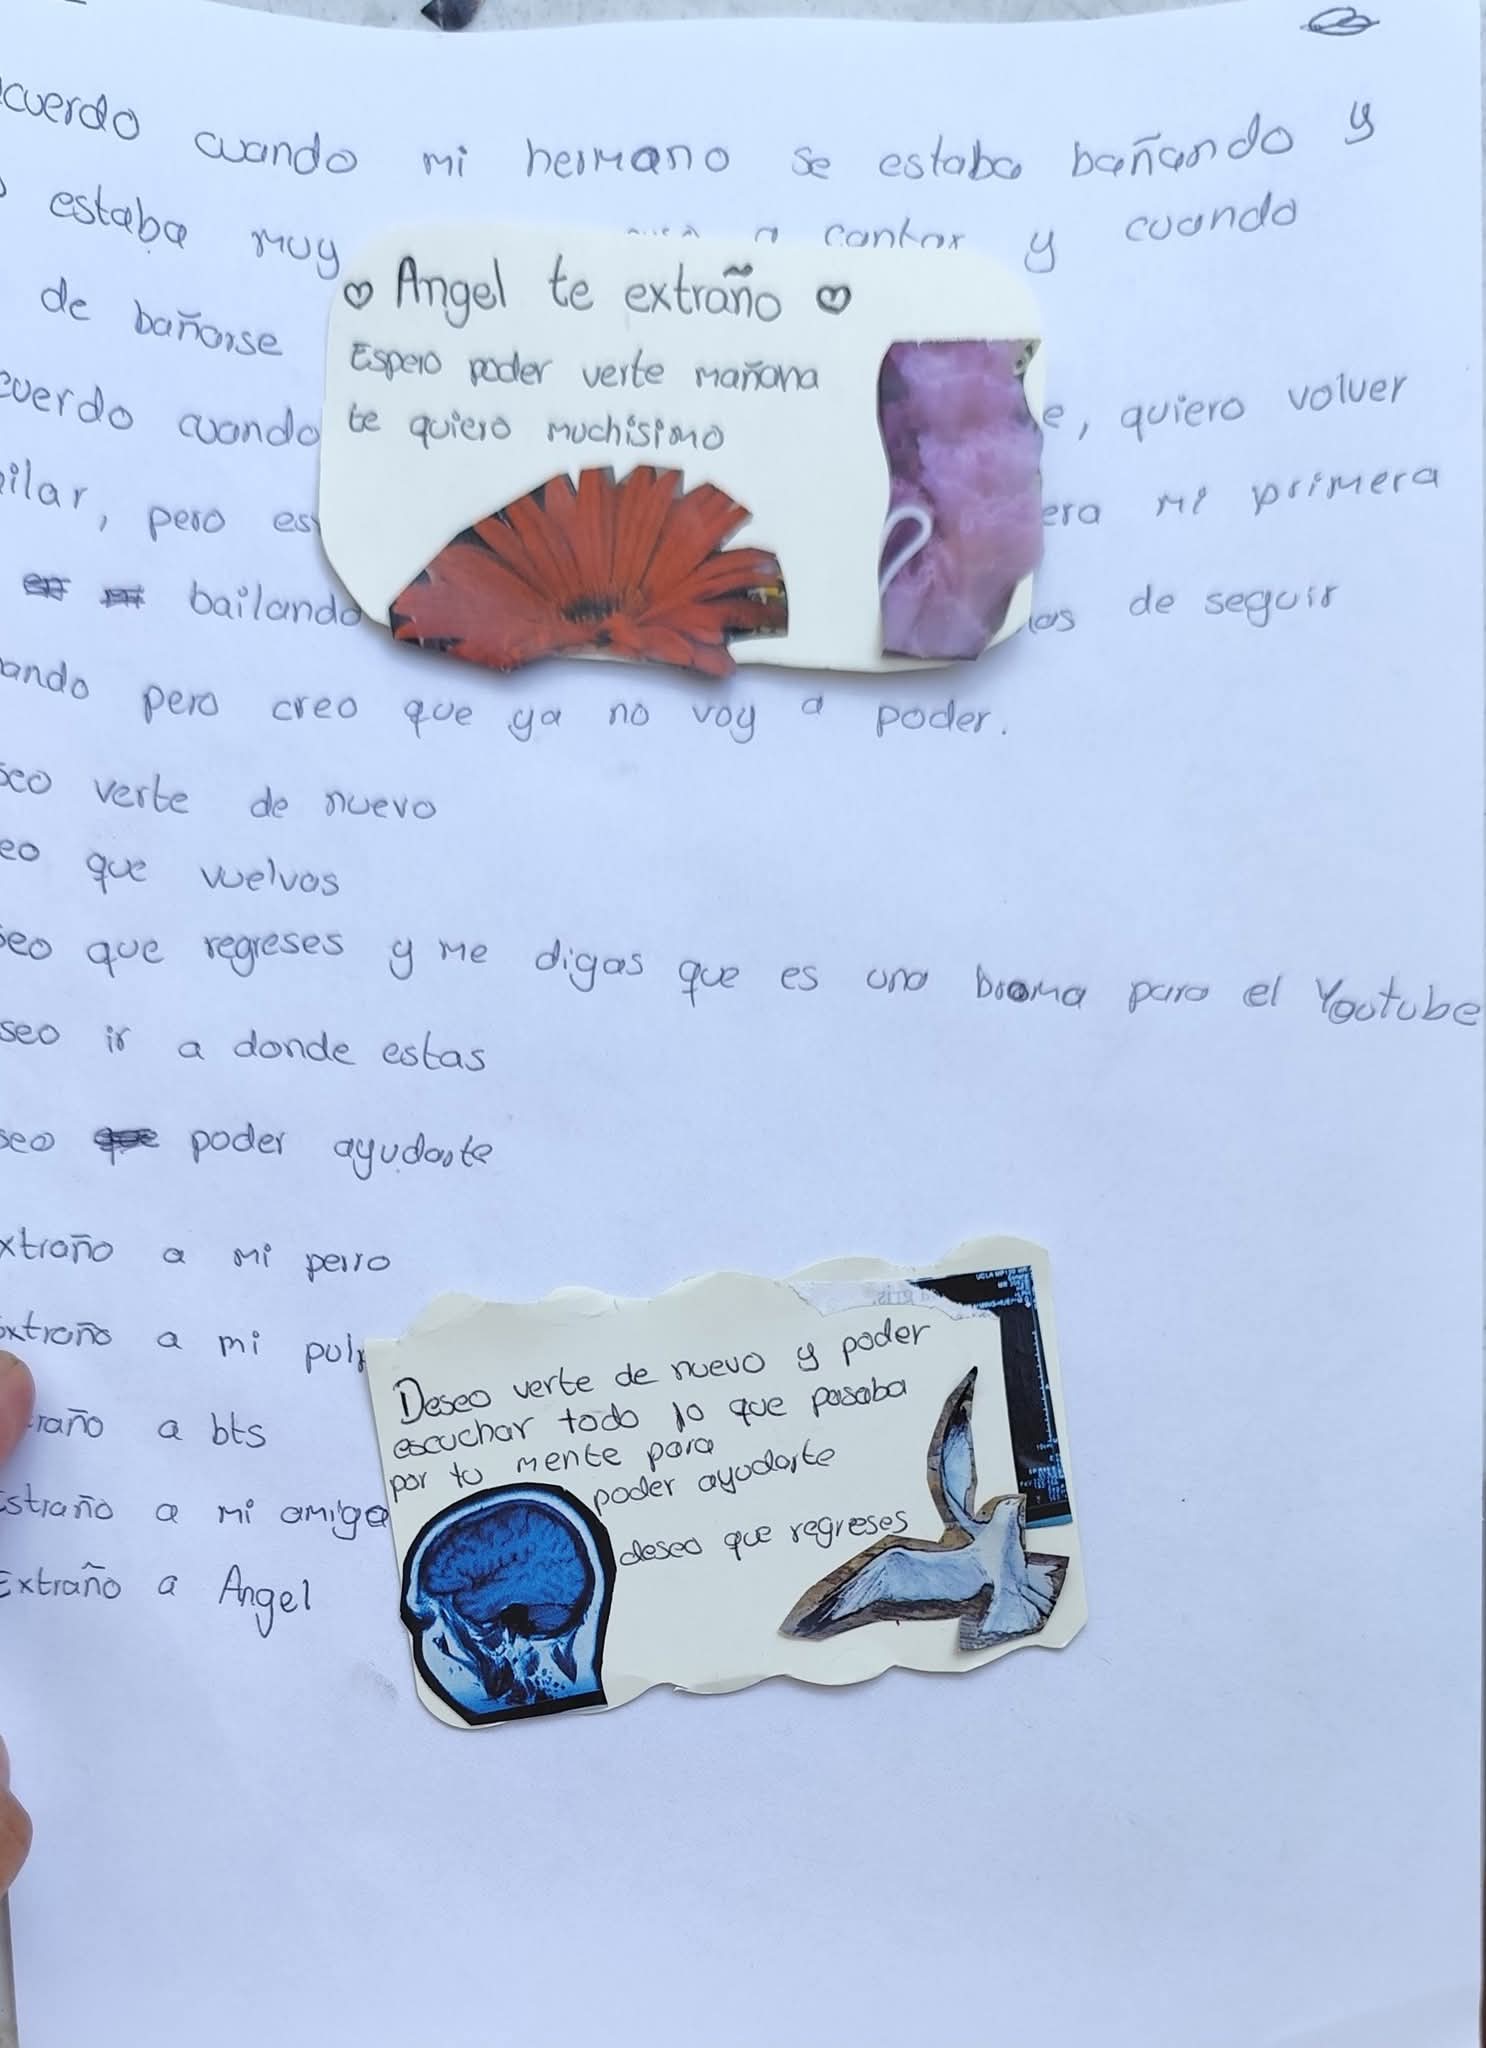 cuerdo cuando mi hermano se estaba bañando y
estaba muy a cantar y cuando
de bañarse
cuerdo cuando e, quiero volver
ilar, pero es era mi primera
bailando las de seguir
ando pero creo que ya no voy a poder.
seo verte de nuevo
eo que vuelvas
seo que regreses y me digas que es una broma para el Youtube
seo ir a donde estas
seo poder ayudarte
xtraño a mi perro
extraño a mi pul
traño a bts
Estraño a mi amiga
Extraño a Angel
♡ Angel te extraño ♡
Espero poder verte mañana
te quiero muchisimo
Deseo verte de nuevo y poder
escuchar todo lo que pasaba
por tu mente para
poder ayudarte
deseo que regreses